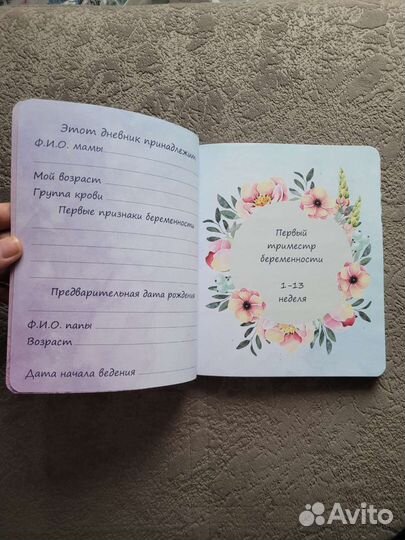 Этот дневник принадлежит
Ф.И.О. мамы
Мой возраст
Группа крови
Первые признаки беременности
Предварительная дата рождения
Ф.И.О. папы
Возраст
Дата начала ведения
Первый
триместр
беременности
1-13
неделя
Avito